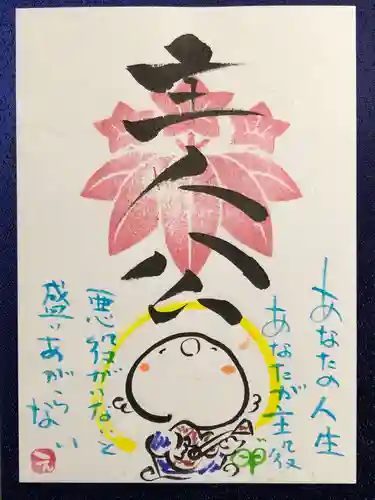 主人公
あなたの人生
あなたが主役
悪役がいないと
盛りあがらない